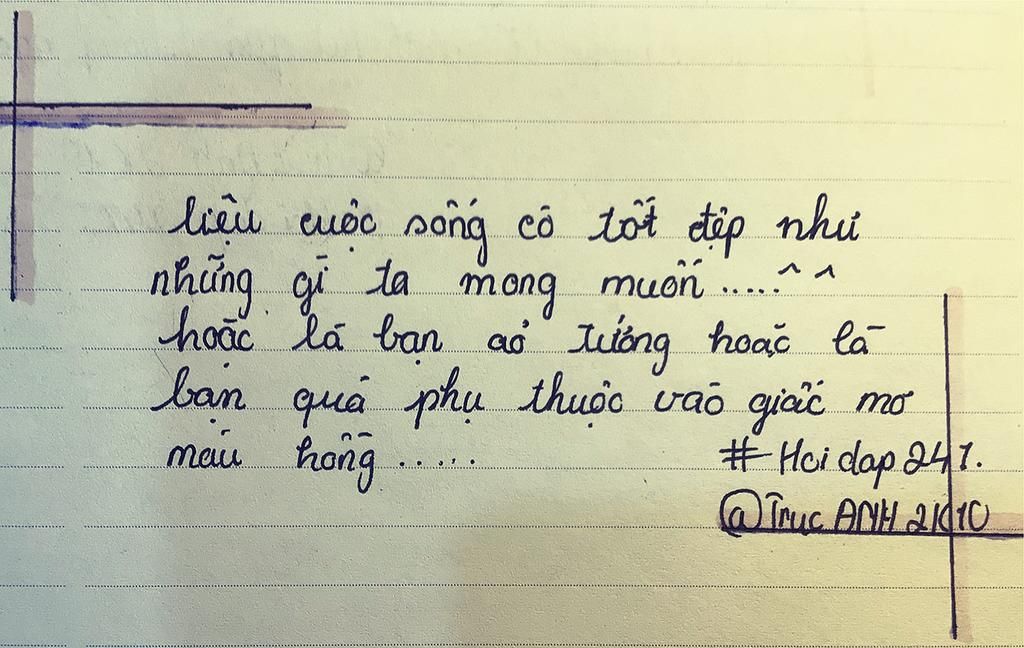 liệu cuộc sống có tốt đẹp như
những gì ta mong muốn.....^ ^
hoặc là bạn ảo tưởng hoặc là
bạn quá phụ thuộc vào giấc mơ
màu hồng.....
#Hoidap247.
@TrucANH21010